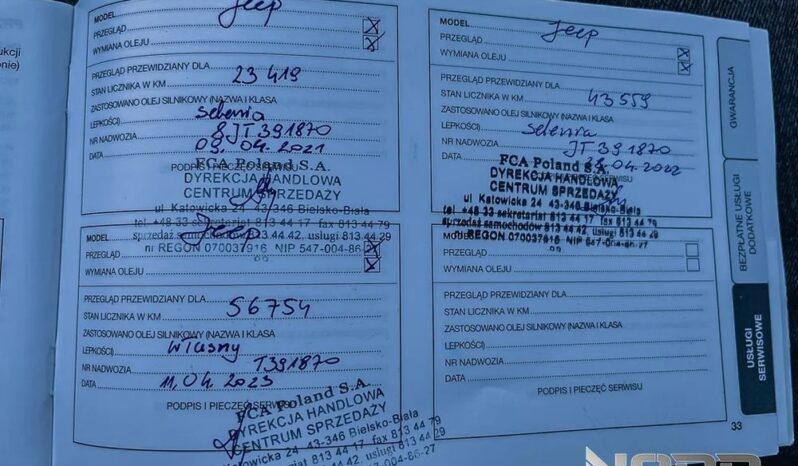 MODEL Jeep
PRZEGLĄD
WYMIANA OLEJU
PRZEGLĄD PRZEWIDZIANY DLA
STAN LICZNIKA W KM 23 419
ZASTOSOWANO OLEJ SILNIKOWY (NAZWA I KLASA
LEPKOŚCI) Selenia
NR NADWOZIA 8JT391870
DATA 09.04.2021
PODPIS I PIECZĘĆ SERWISU
FCA Poland S.A.
DYREKCJA HANDLOWA
CENTRUM SPRZEDAŻY
ul Katowicka 24 43-346 Bielsko-Biała
tel +48 33 sekretariat 813 44 17 fax 813 44 79
sprzedaż samochodów 813 44 42, usługi 813 44 29
nr REGON 070037916 NIP 547-004-86-27
MODEL Jeep
PRZEGLĄD
WYMIANA OLEJU
PRZEGLĄD PRZEWIDZIANY DLA
STAN LICZNIKA W KM 56754
ZASTOSOWANO OLEJ SILNIKOWY (NAZWA I KLASA
LEPKOŚCI) własny
NR NADWOZIA T391870
DATA 11.04.2023
PODPIS I PIECZĘĆ SERWISU
FCA Poland S.A.
DYREKCJA HANDLOWA
CENTRUM SPRZEDAŻY
Katowicka 24 43-346 Bielsko-Biała
MODEL Jeep
PRZEGLĄD
WYMIANA OLEJU
PRZEGLĄD PRZEWIDZIANY DLA
STAN LICZNIKA W KM 43559
ZASTOSOWANO OLEJ SILNIKOWY (NAZWA I KLASA
LEPKOŚCI) Selenia
NR NADWOZIA JT391870
DATA
FCA Poland S.A.
DYREKCJA HANDLOWA
CENTRUM SPRZEDAŻY
ul Katowicka 24 43-346 Bielsko-Biała
tel +48 33 sekretariat 813 44 17 fax 813 44 79
sprzedaż samochodów 813 44 42, usługi 813 44 29
REGON 070037916 NIP 547-004-86-27
MODEL
PRZEGLĄD
WYMIANA OLEJU
PRZEGLĄD PRZEWIDZIANY DLA
STAN LICZNIKA W KM
ZASTOSOWANO OLEJ SILNIKOWY (NAZWA I KLASA
LEPKOŚCI)
NR NADWOZIA
DATA
PODPIS I PIECZĘĆ SERWISU
33
GWARANCJA
BEZPŁATNE USŁUGI
DODATKOWE
USŁUGI
SERWISOWE